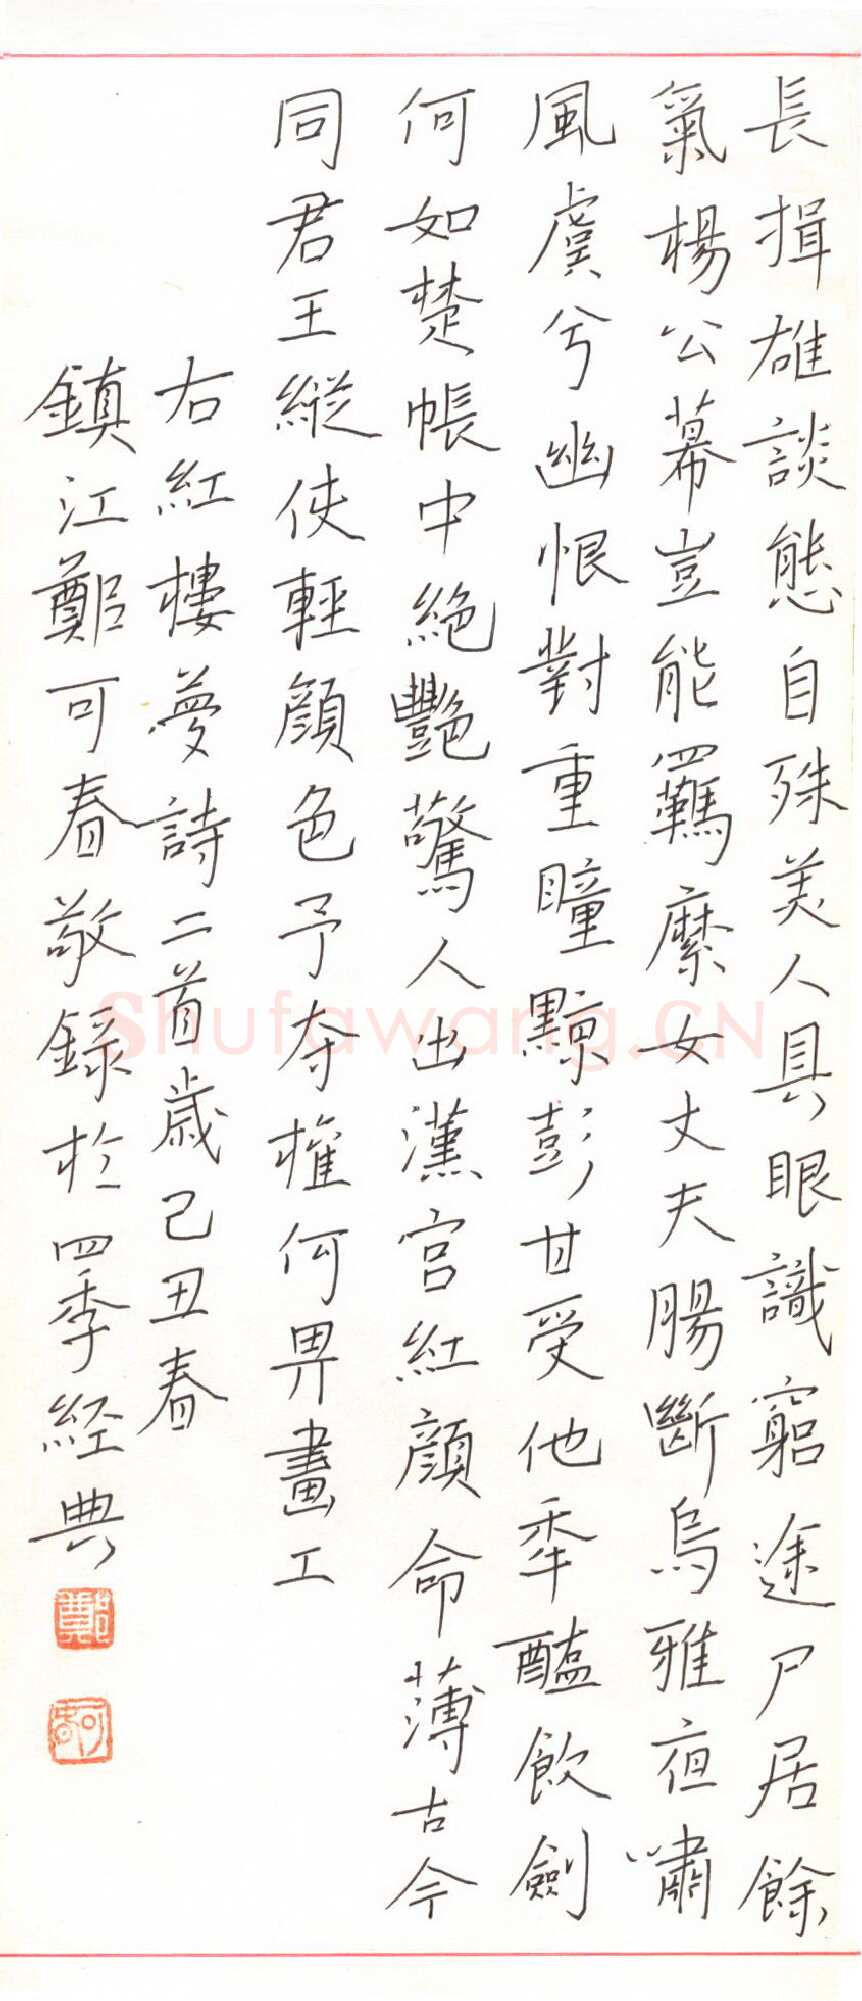 長揖雄談態自殊美人具眼識窮途尸居餘
氣楊公幕豈能羈縻女丈夫腸斷烏騅夜嘯
風虞兮幽恨對重瞳黥彭甘受他年醢飲劍
何如楚帳中絕艷驚人出漢宮紅顏命薄古今
同君王縱使輕顏色予奪權何畀畫工
右紅樓夢詩二首歲己丑春
鎮江鄭可春敬錄於四季經典
鄭
shufawang.CN